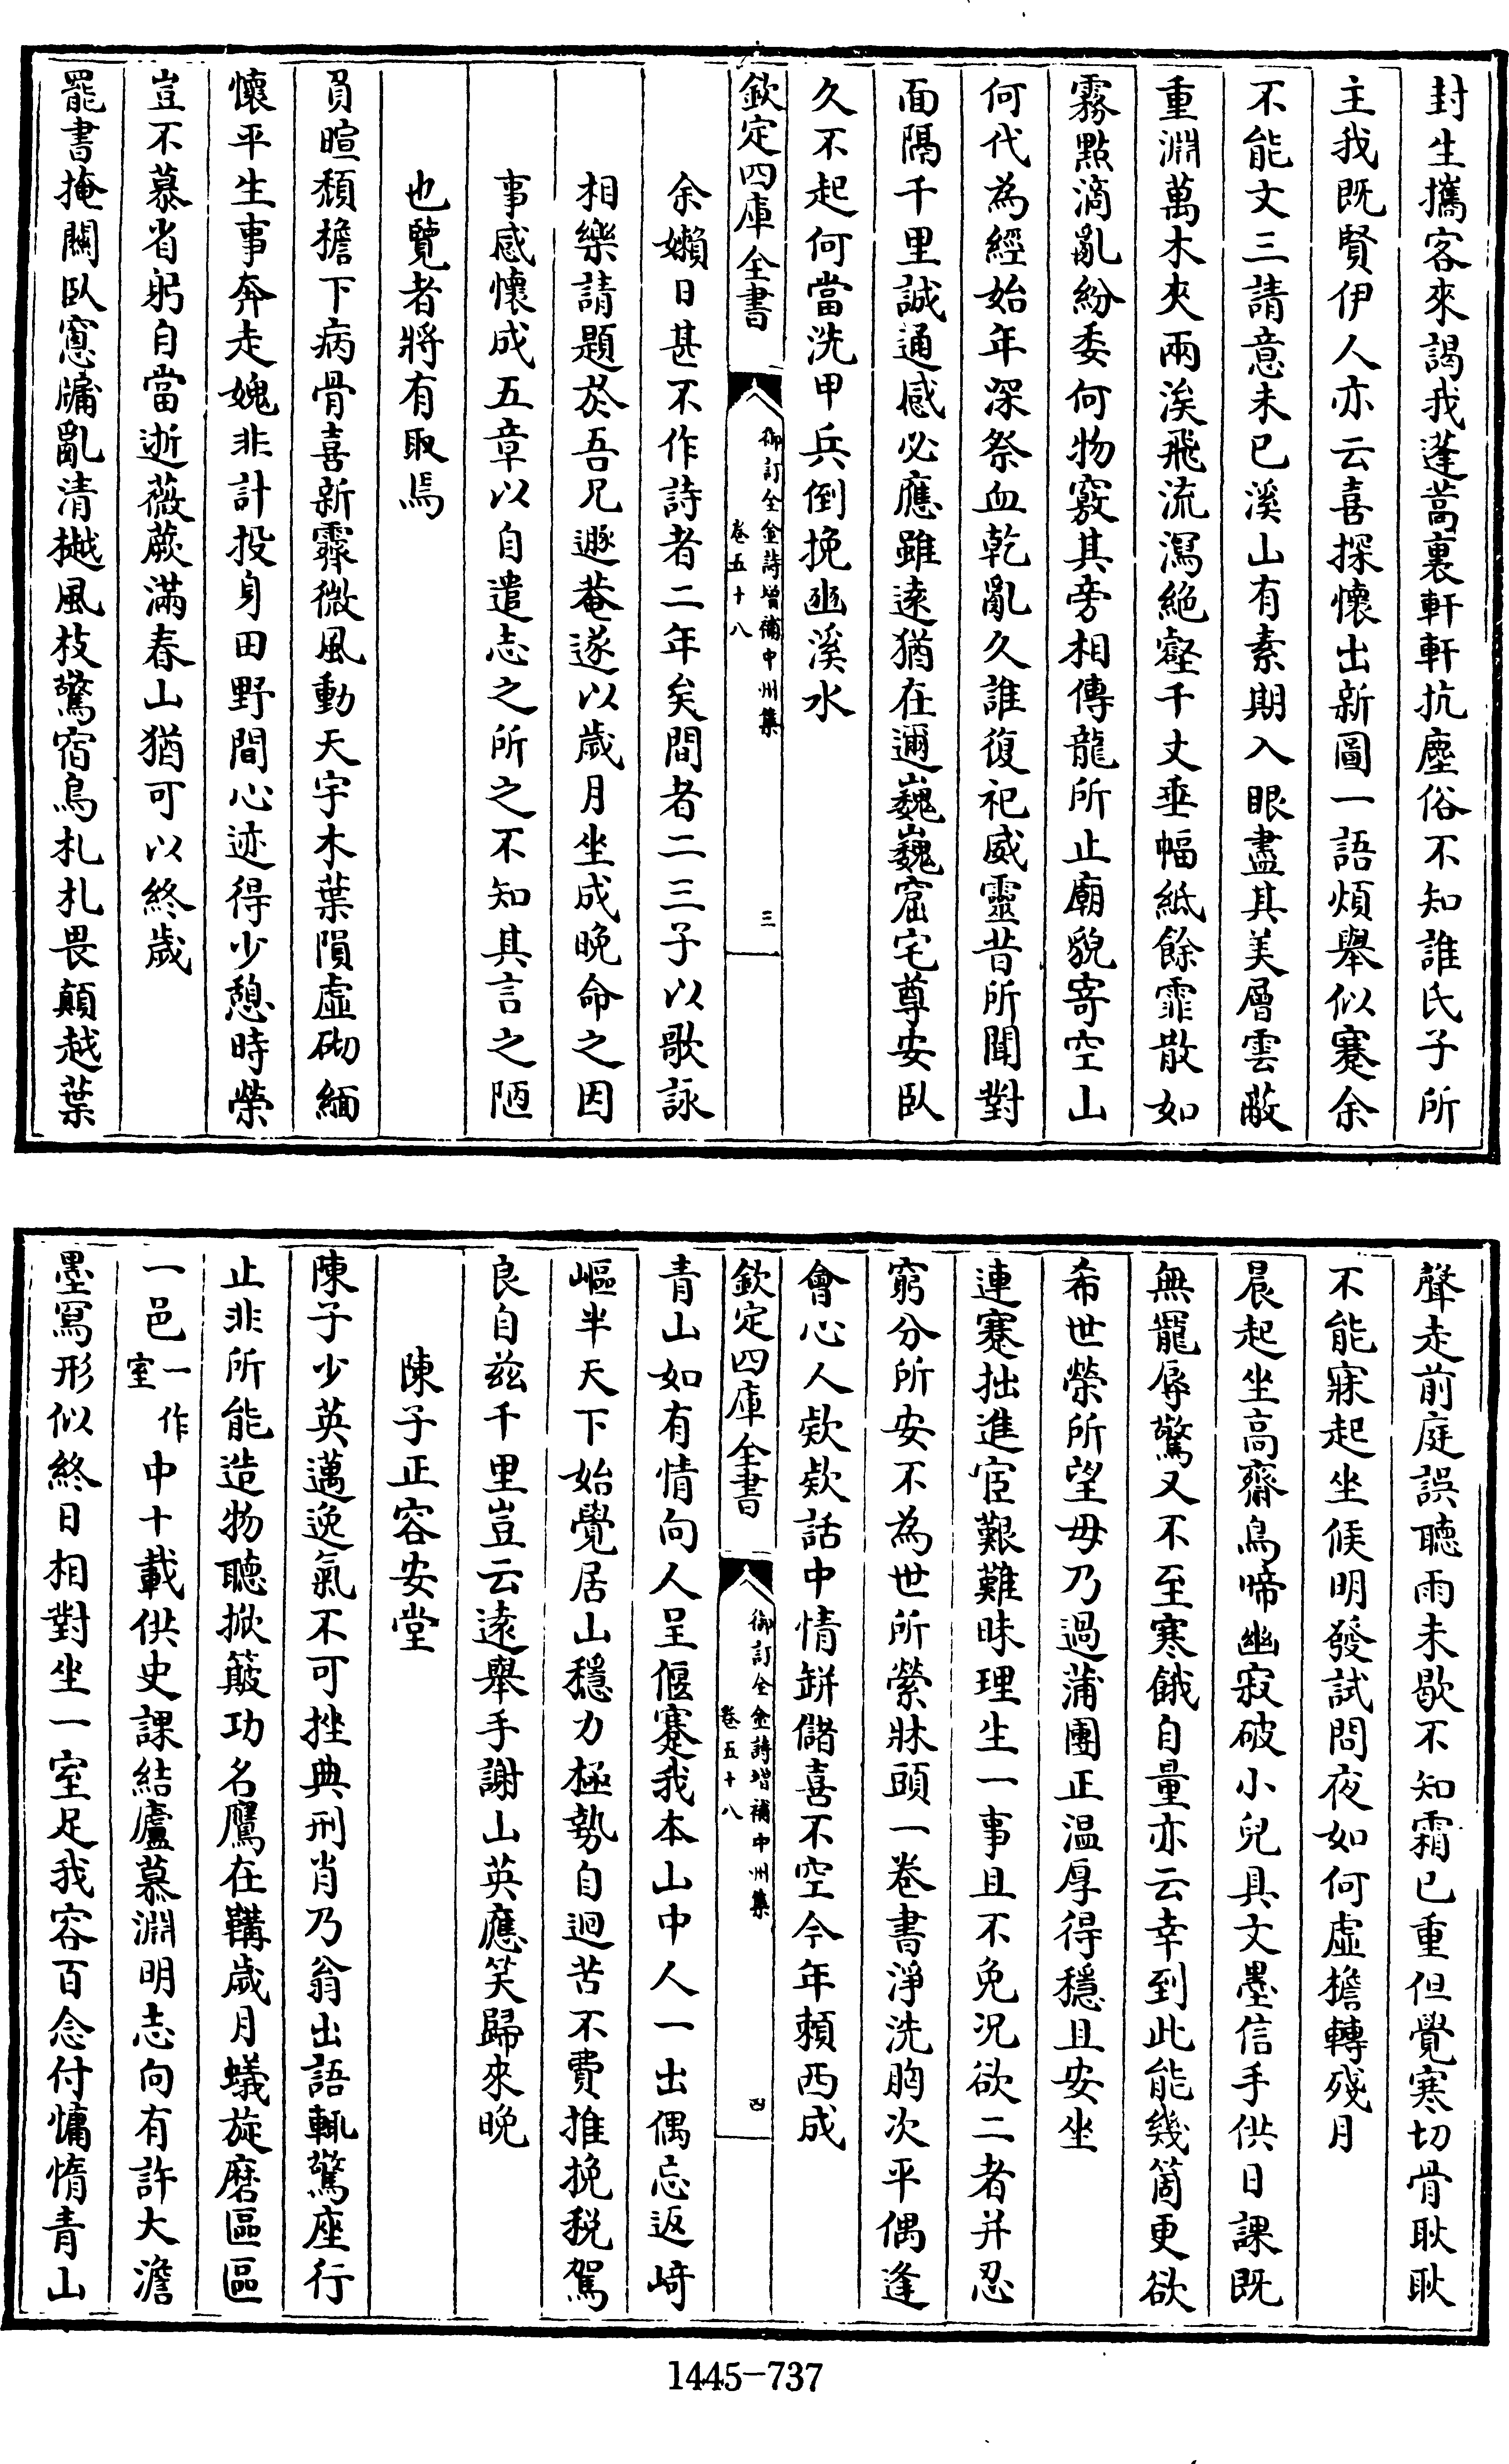 封生攜客來謁我蓬蒿裏軒軒抗塵俗不知誰氏子所
主我既賢伊人亦云喜探懷出新圖一語煩舉似蹇余
不能文三請意未已溪山有素期入眼盡其美層雲蔽
重淵萬木夾兩涘飛流瀉絕壑千丈垂幅紙餘霏散如
霧點滴亂紛委何物竅其旁相傳龍所止廟貌寄空山
何代為經始年深祭血乾亂久誰復祀威靈昔所聞對
面隔千里誠通感必應雖遠猶在邇巍巍窟宅尊安臥
久不起何當洗甲兵倒挽幽溪水
欽定四庫全書
御訂全金詩增補中州集
卷五十八
三
余嬾日甚不作詩者二年矣間者二三子以歌詠
相樂請題於吾兄遯菴遂以歲月坐成晚命之因
事感懷成五章以自遣志之所之不知其言之陋
也覽者將有取焉
負暄頹檐下病骨喜新霽微風動天宇木葉隕虛砌緬
懷平生事奔走媿非計投身田野間心迹得少憩時榮
豈不慕省躬自當逝薇蕨滿春山猶可以終歲
罷書掩關臥窻牖亂清樾風枝驚宿鳥札札畏顛越葉
聲走前庭誤聽雨未歇不知霜已重但覺寒切骨耿耿
不能寐起坐候明發試問夜如何虛檐轉殘月
晨起坐高齋鳥啼幽寂破小兒具文墨信手供日課既
無寵辱驚又不至寒餓自量亦云幸到此能幾箇更欲
希世榮所望毋乃過蒲團正温厚得穩且安坐
連蹇拙進宦艱難昧理生一事且不免况欲二者并忍
窮分所安不為世所縈牀頭一卷書淨洗胷次平偶逢
會心人欵欵話中情缾儲喜不空今年頼西成
欽定四庫全書
御訂全金詩增補中州集
卷五十八
四
青山如有情向人呈偃蹇我本山中人一出偶忘返﨑
嶇半天下始覺居山穩力極勢自迴苦不費推挽稅駕
良自兹千里豈云遠舉手謝山英應笑歸來晚
陳子正容安堂
陳子少英邁逸氣不可挫典刑肖乃翁出語輒驚座行
止非所能造物聽掀簸功名鷹在鞲歲月蟻旋磨區區
一邑一作室中十載供史課結廬慕淵明志向有許大澹
墨寫形似終日相對坐一室足我容百念付慵惰青山
1445-737